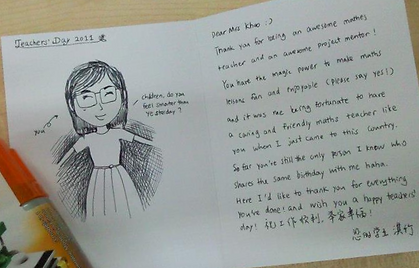 Teachers' Day 2011
you
children, do you
feel smarter than
yesterday?
Dear Mrs Khoo :)
Thank you for being an awesome maths
teacher and an awesome project mentor!
You have the magic power to make maths
lessons fun and enjoyable (please say yes!)
and it was me being fortunate to have
a caring and friendly maths teacher like
you when I just came to this country.
So far you're still the only person I know who
shares the same birthday with me haha.
Here I'd like to thank you for everything
you've done! and wish you a happy teachers'
day! 祝工作顺利, 幸福!
学生